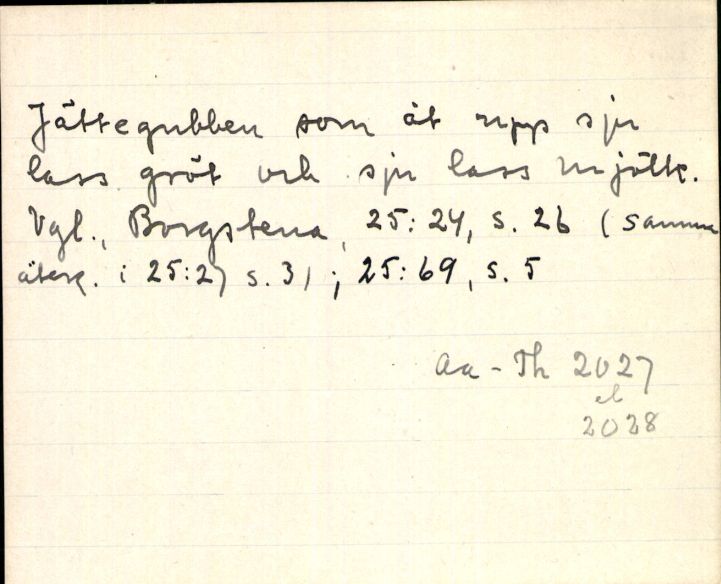 Jättegubben som åt upp sju
lass gröt och sju lass mjölk.
Vgl., Borgstena, 25:24, s. 26 (samma
återk. i 25:27 s. 31; 25:69, s. 5
Aa-Th 2027
el
2028